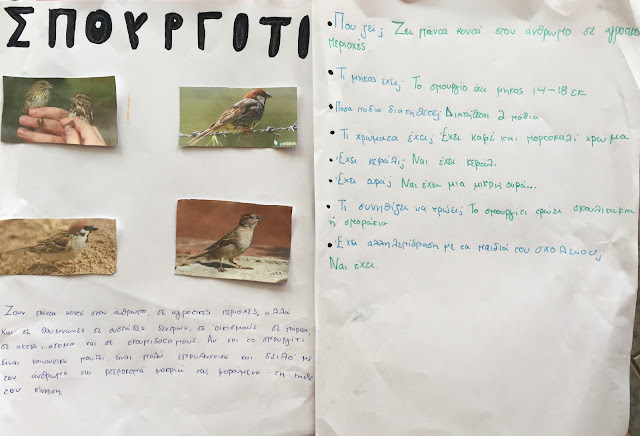 ΣΠΟΥΡΓΙΤΙ
Ζουν πάντα κοντά στον άνθρωπο, σε αγροτικές περιοχές, αλλά
και σε θαμνώνες σε συστάδες δέντρων, σε οικισμούς σε πάρκα,
σε άκτές, ακόμα και σε σταυροδρόμους. Αν και το σπουργίτι
είναι κοινωνικό πουλί είναι πολύ επιφυλακτικό και δειλό με
τον άνθρωπο και μακριά την κάθε
του κίνηση.
• Που ζεις; Ζει πάντα κοντά στον άνθρωπο σε αγροτικές
περιοχές
• Τι μήκος έχεις; Το σπουργίτι έχει μήκος 14-18 εκ
• Πόσα πόδια διατηθέτεις; Διατηθέται 2 πόδια
• Τι χρώματα έχεις; Έχει καφέ και πορτοκαλί χρώμα
• Έχεις κεφάλι; Ναι έχει κεφάλι
• Έχεις ουρά; Ναι έχει μια μικρή ουρά...
• Τι συνηθίζεις να τρώεις; Το σπουργίτι τρώει σκουλικάκια
ή σποράκια
• Έχει αλληλεπίδραση με τα παιδιά του σχολείου;
Ναι έχει